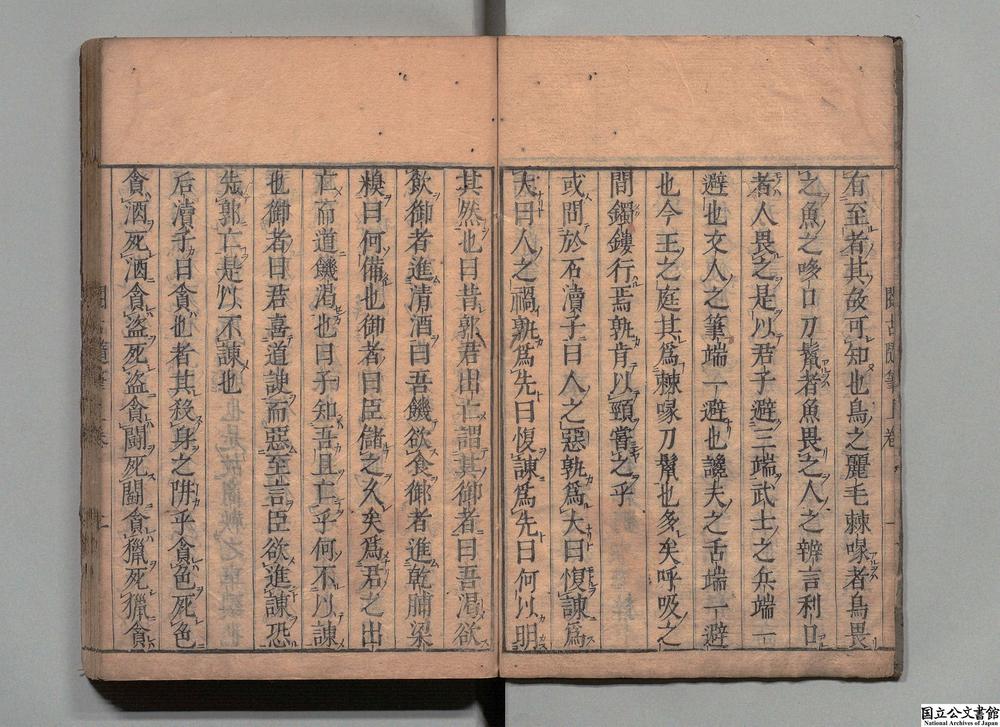 有至者其故可知也鳥之麗毛棘喙者鳥畏
之魚之哆口刀鬚者魚畏之人之辨言利口
者人畏之是以君子避三端武士之兵端一
避也文人之筆端一避也讒夫之舌端一避
也今王之庭其爲棘喙刀鬚也多矣呼吸之
間鐲鏤行焉孰肯以頸嘗之乎
或問於石瀆子曰人之惡孰爲大曰愎諫爲
大曰人之禍孰爲先曰愎諫爲先曰何以明
其然也曰昔郭君出亡謂其御者曰吾渴欲
飲御者進清酒曰吾饑欲食御者進乾脯梁
糗曰何備也御者曰臣儲之久矣爲君之出
亡而道饑渴也曰子知吾且亡乎何不以諫
也御者曰君喜道諛而惡至言臣欲進諫恐
先郭亡是以不諫也
后瀆子曰貪也者其殺身之阱乎貪色死色
貪酒死酒貪盜死盜貪鬪死鬪貪獵死獵貪
閱古隨筆上卷 一
閱古隨筆 上卷 二
国立公文書館
National Archives of Japan